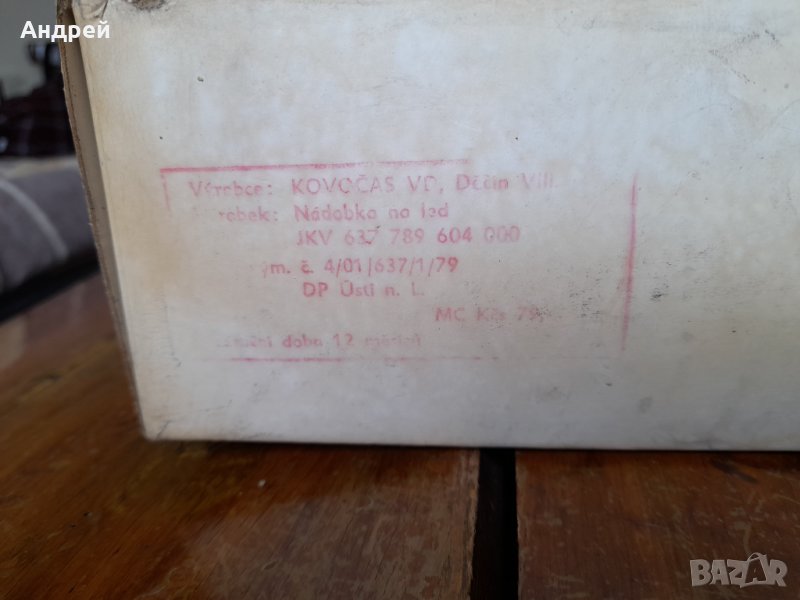 Андрей
Výrobce: KOVOČAS VD, Děčín VIII.
robek: Nádobka na led
JKV 637 789 604 000
ým. č. 4/01/637/1/79
DP Ústí n. L.
MC Kčs 79,
doba 12 měsíců
BAZAR